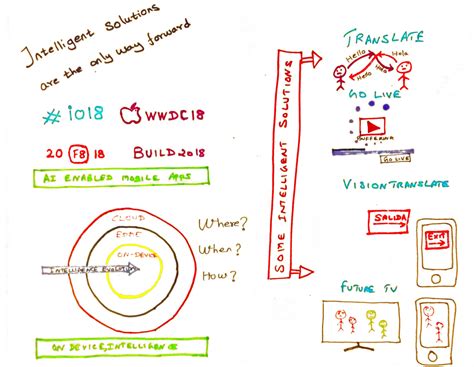 Intelligent Solutions
are the only way forward
#io18
WWDC18
20 F8 18
BUILD2018
AI ENABLED MOBILE APPS
CLOUD
EDGE
ON-DEVICE
INTELLIGENCE EVOLUTION
Where?
When?
How?
ON DEVICE INTELLIGENCE
SOME INTELLIGENT SOLUTIONS
TRANSLATE
Hello
Hola
Hello
Hola
GO LIVE
BUFFERING
GO LIVE
VISION TRANSLATE
SALIDA
EXIT
FUTURE TV